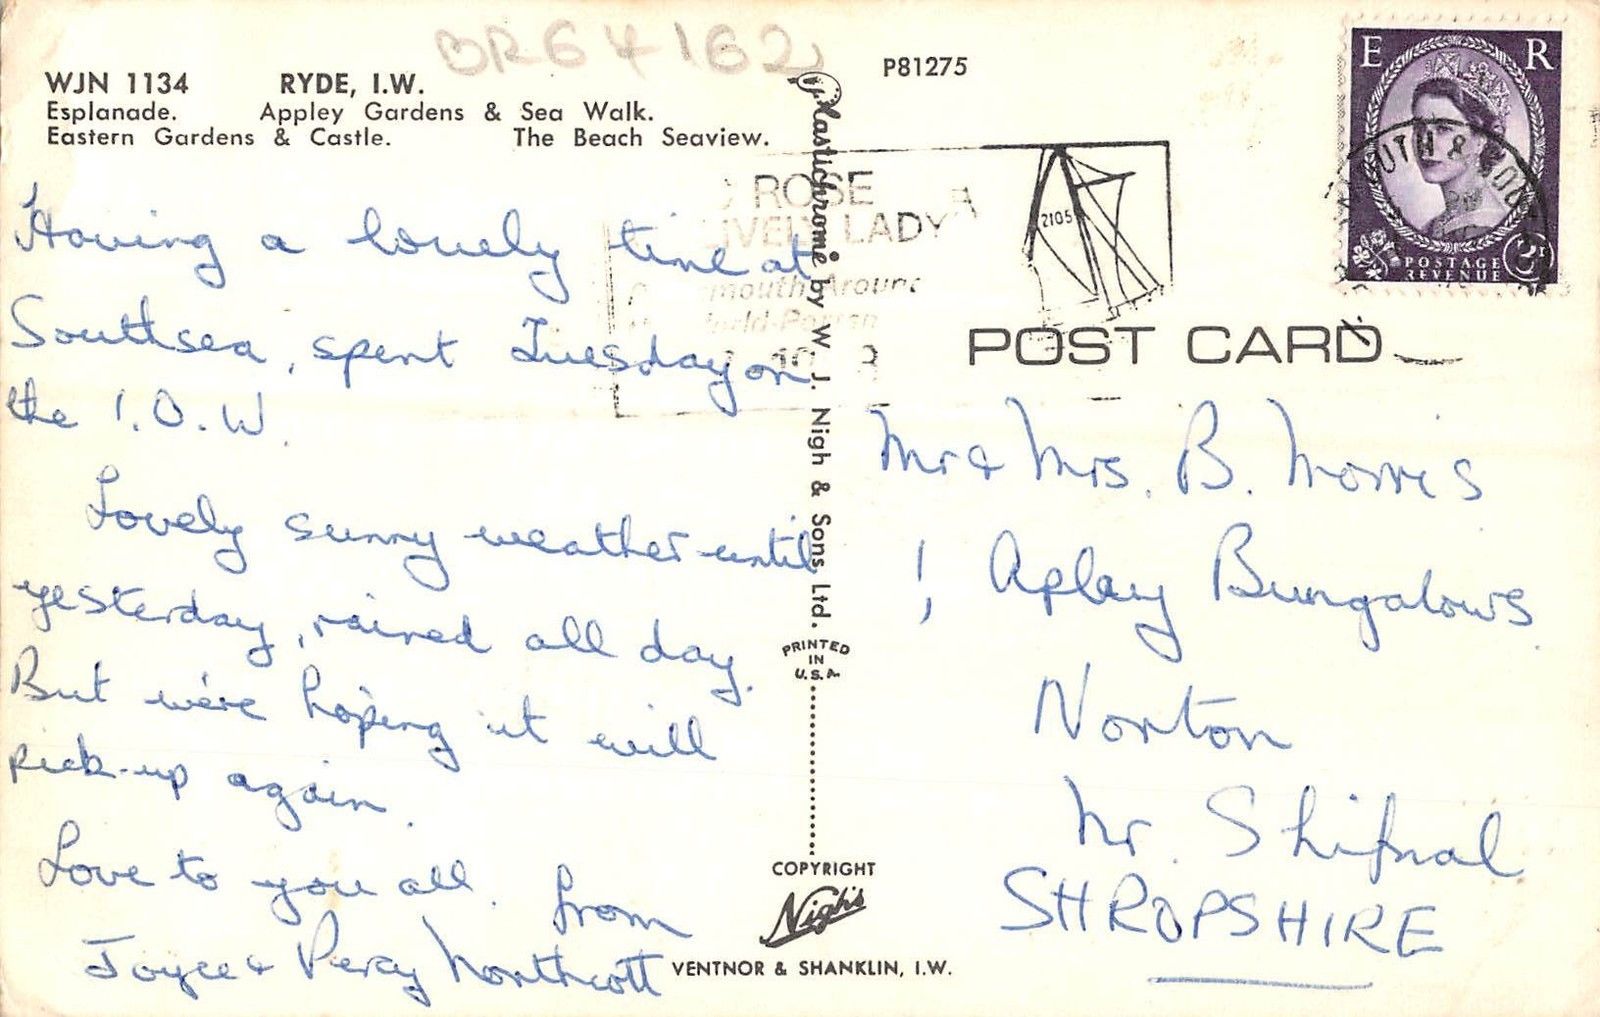 BR64162
WJN 1134 RYDE, I.W.
Esplanade. Appley Gardens & Sea Walk.
Eastern Gardens & Castle. The Beach Seaview.
P81275
E R
POSTAGE
REVENUE
ROSE
LIVELY LADY
2105
mouth Around
POST CARD
Having a lovely time at
Southsea, spent Tuesday on
the I.O.W.
Lovely sunny weather until
yesterday, rained all day.
But we're hoping it will
pick-up again.
Love to you all. from
Joyce & Percy Northcott
Plastichrome by W. J. Nigh & Sons Ltd.
PRINTED
IN
U.S.A.
COPYRIGHT
Nigh's
VENTNOR & SHANKLIN, I.W.
Mr & Mrs. B. Morris
1, Apley Bungalows
Norton
Nr. Shifnal
SHROPSHIRE